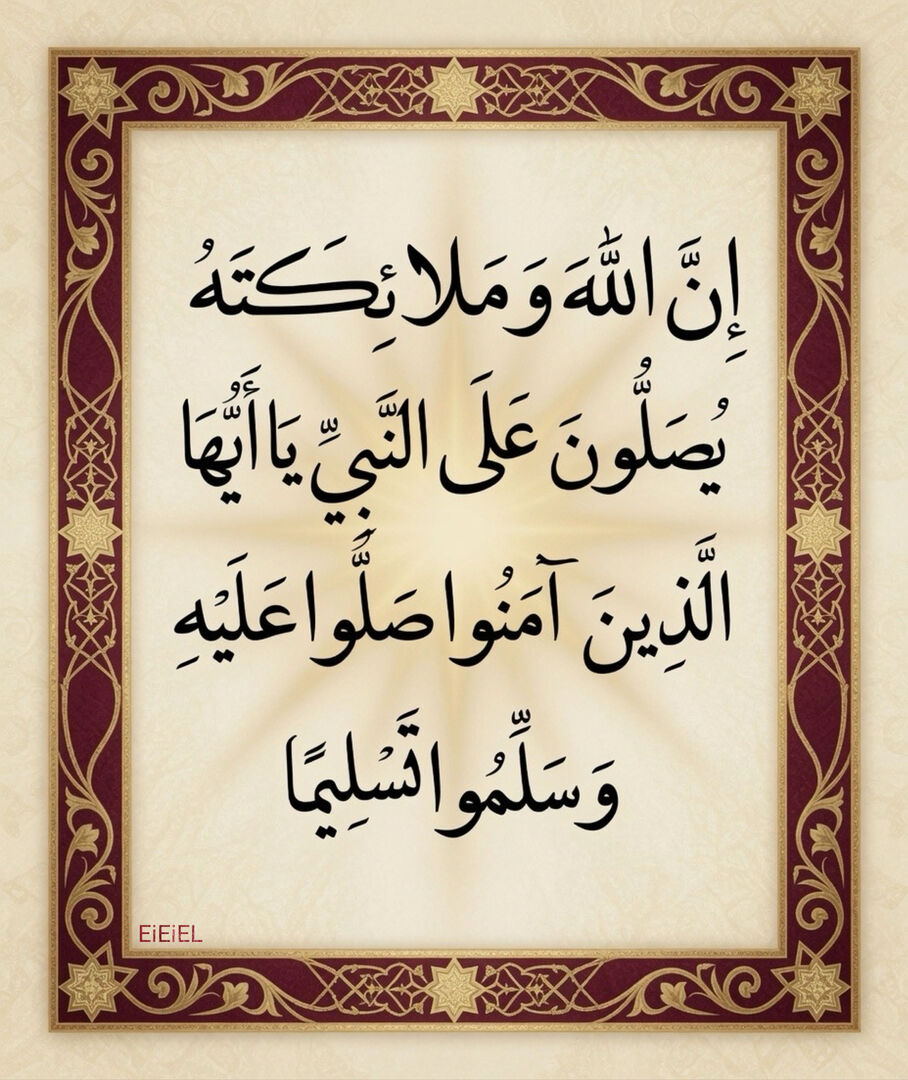 إِنَّ اللّٰهَ وَمَلائِكَتَهُ
يُصَلُّونَ عَلَى النَّبِيِّ يَا أَيُّهَا
الَّذِينَ آمَنُوا صَلُّوا عَلَيْهِ
وَسَلِّمُوا تَسْلِيمًا
EiEiEL